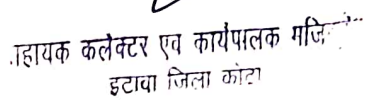 सहायक कलेक्टर एव कार्यपालक मजि
इटावा जिला कोटा